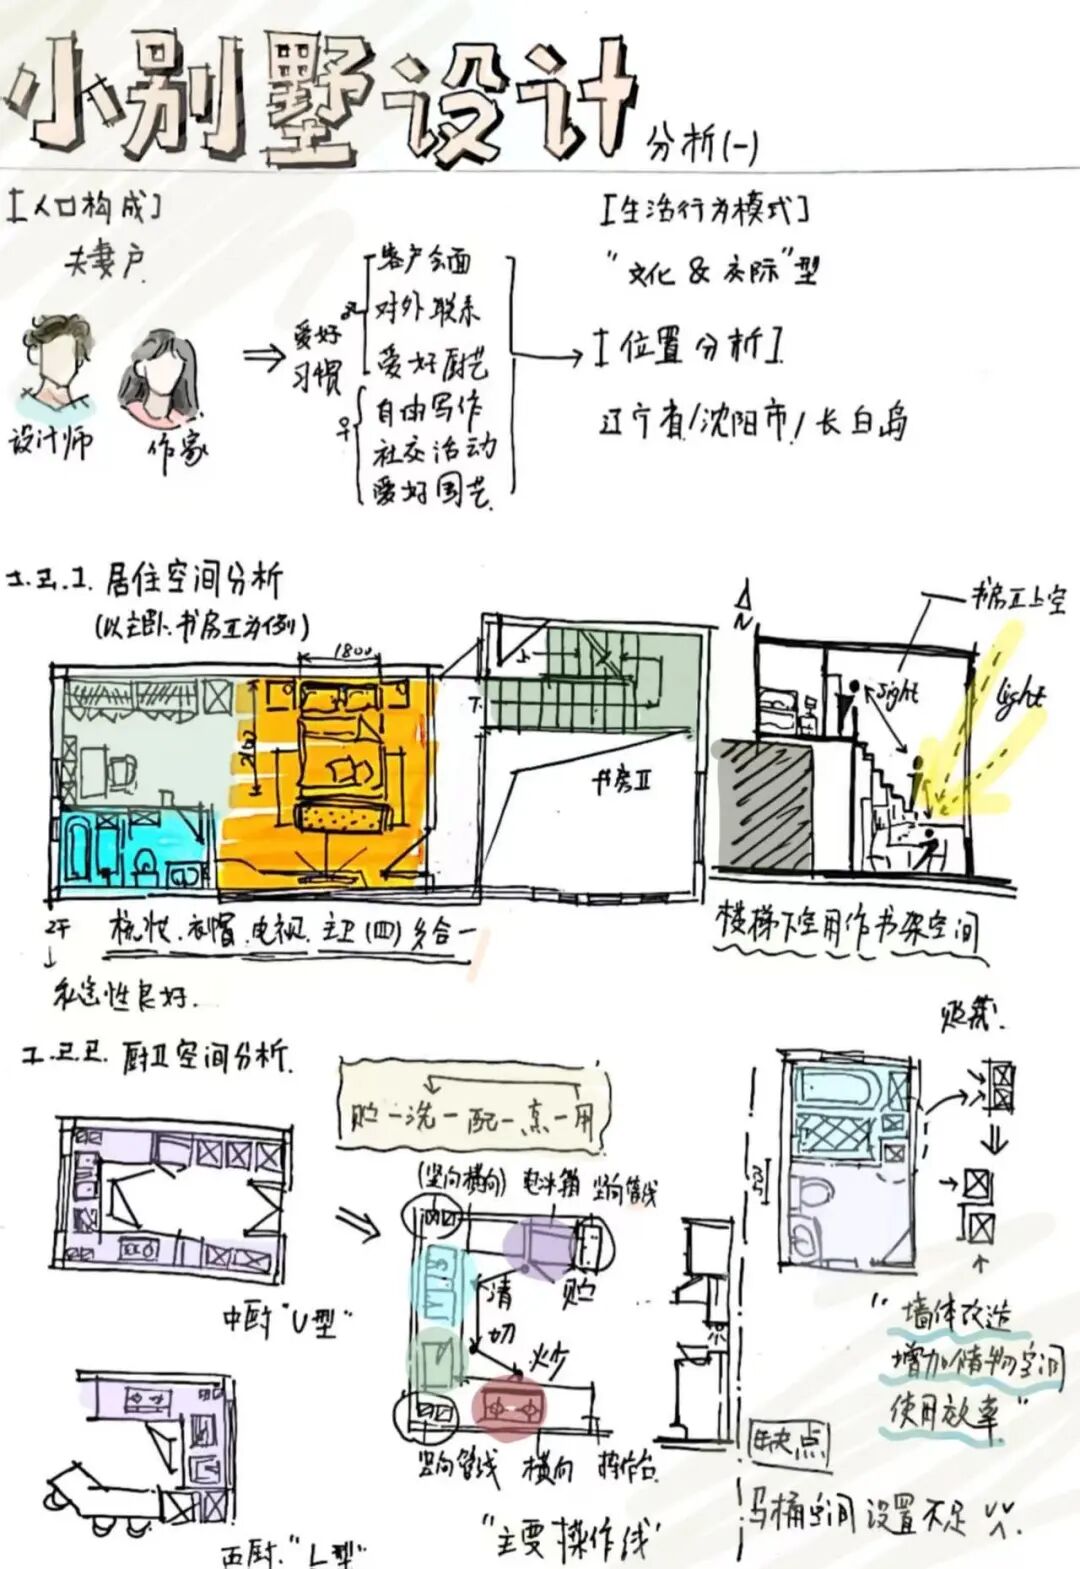 小别墅设计 分析(一)
[人口构成]
夫妻户
设计师
作家
爱好
习惯
♂
客户会面
对外联系
爱好厨艺
♀
自由写作
社交活动
爱好园艺
[生活行为模式]
"文化 & 交际"型
[位置分析]
辽宁省/沈阳市/长白岛
1.2.1. 居住空间分析
(以主卧、书房Ⅱ为例)
1800
2100
上
下
书房Ⅱ
N
书房Ⅱ上空
sight
light
梳妆、衣帽、电视、主卫(四)多合一
楼梯下空用作书架空间
私密性良好.
1.2.2. 厨卫空间分析.
贮一洗一配一烹一用
(竖向横向) 电冰箱 竖向管线
清
贮
切
炒
竖向管线 横向 操作台
"主要操作线"
中厨"U型"
西厨."L型"
"墙体改造
增加储物空间
使用效率"
缺点
马桶空间设置不足